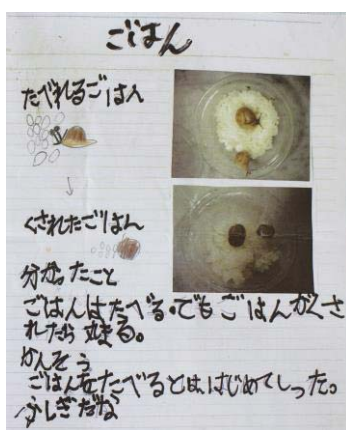 ごはん
たべれるごはん
くされたごはん
分かったこと
ごはんはたべる。でもごはんがくさ
れたら まる。
かんそう
ごはんをたべるとは、はじめてしった。
ふしぎだな